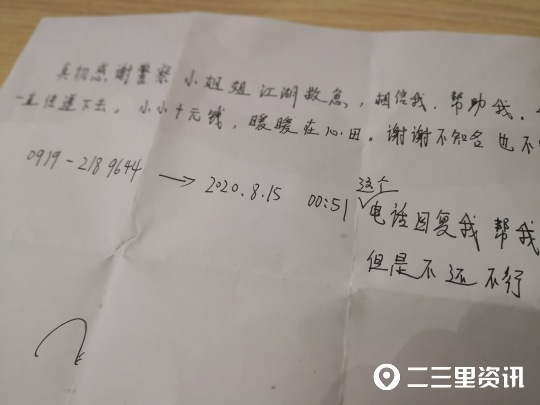 真切感谢警察小姐姐江湖救急，相信我，帮助我。
一直传递下去。小小十元钱，暖暖在心田。谢谢不知名也不
0919-2189644 → 2020.8.15 00:51 这个电话回复我 帮我
但是不还不行
二三里资讯